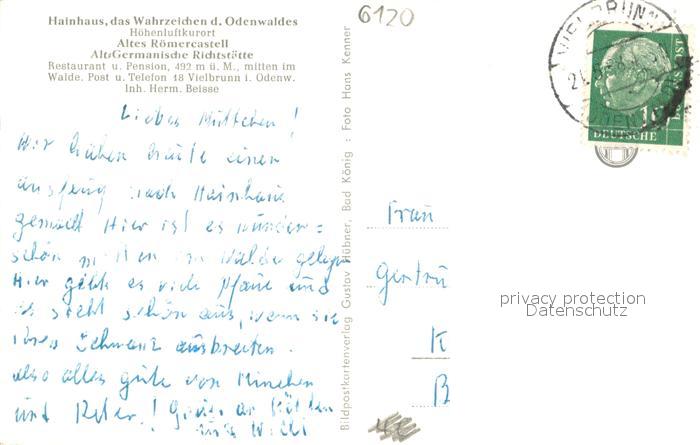 Hainhaus, das Wahrzeichen d. Odenwaldes
Höhenluftkurort
Altes Römercastell
Alt-Germanische Richtstätte
Restaurant u. Pension, 492 m ü. M., mitten im
Walde. Post u. Telefon 18 Vielbrunn i. Odenw.
Inh. Herm. Beisse
6120
Liebes Muttchen!
Wir haben heute einen
Ausflug nach Hainhaus
gemacht Hier ist es wunder=
schön mitten im Walde gelegen
Hier gibt es viele Pfaue und
es sieht schön aus, wenn sie
ihren Schwanz ausbreiten.
Also alles gute von
und Peter.!
Bildpostkartenverlag Gustav Hübner, Bad König : Foto Hans Kenner
Frau
Gertru
K
B
DEUTSCHE
privacy protection
Datenschutz